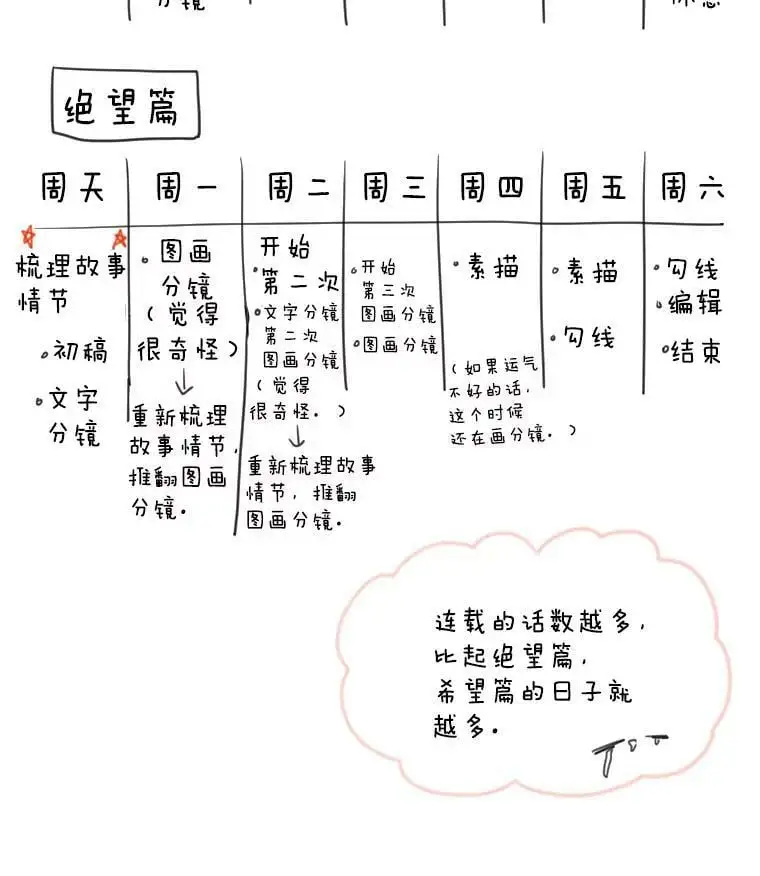 分镜
绝望篇
周天 周一 周二 周三 周四 周五 周六
梳理故事
情节
·初稿
·文字
分镜
·图画
分镜
(觉得
很奇怪)
↓
重新梳理
故事情节,
推翻图画
分镜。
开始
·第二次
·文字分镜
第二次
图画分镜
(觉得
很奇怪。)
↓
重新梳理故事
情节,推翻
图画分镜。
·开始
第三次
图画分镜
·图画分镜
·素描
(如果运气
不好的话,
这个时候
还在画分镜。)
·素描
·勾线
·勾线
·编辑
·结束
连载的话数越多,
比起绝望篇,
希望篇的日子就
越多。